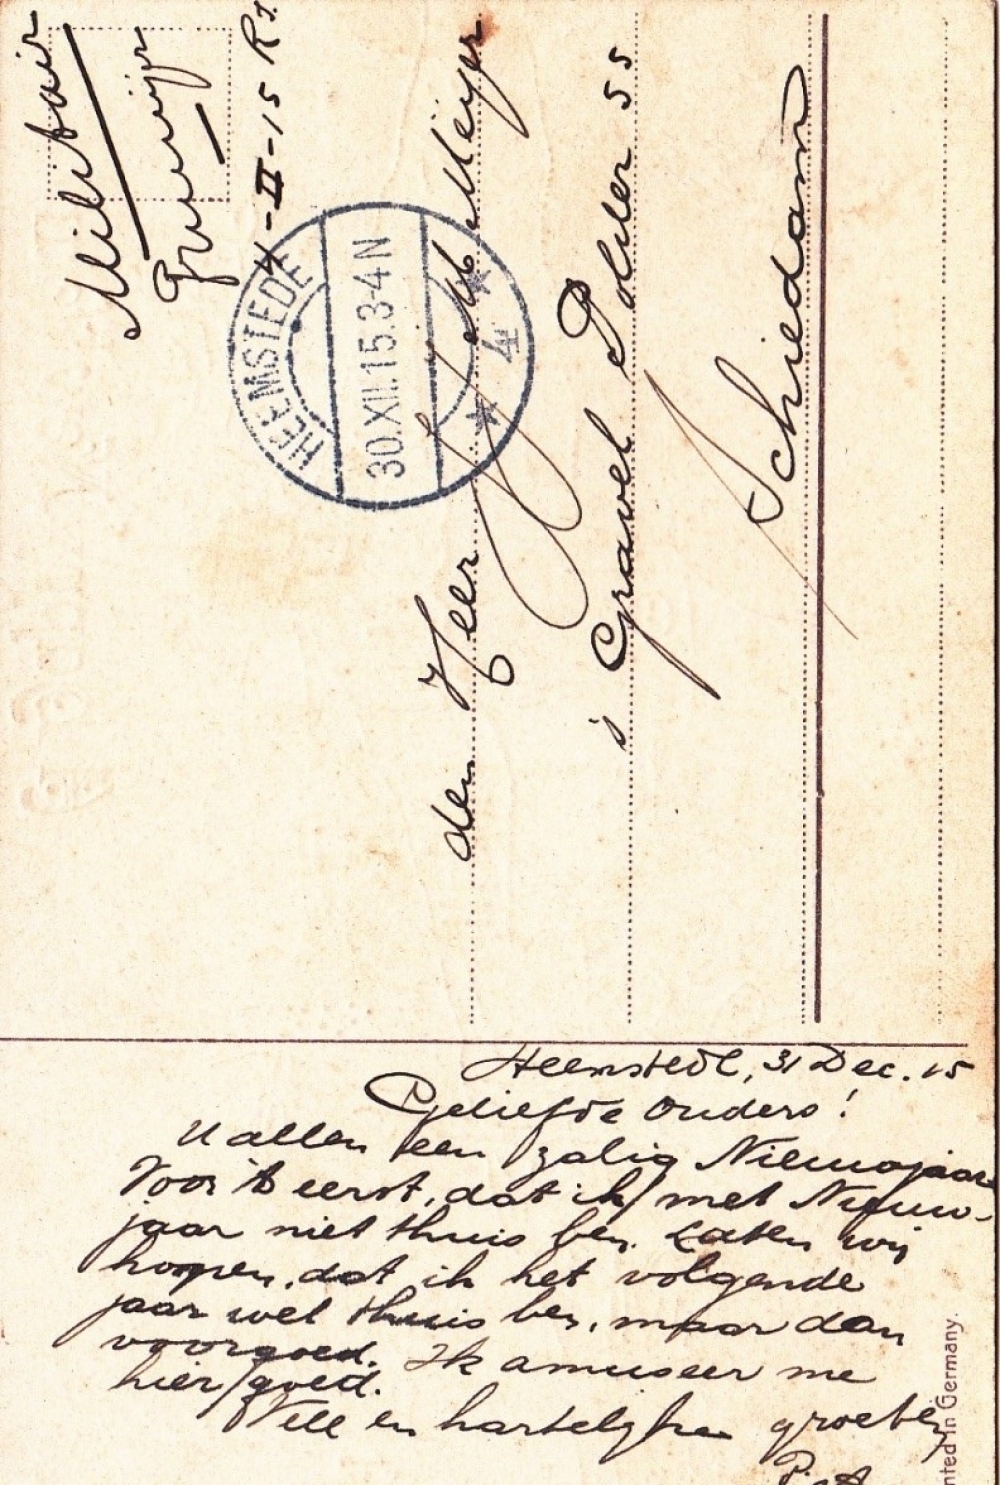 Militair
Grutijn
4-II-15 R.I.
HEEMSTEDE
30.XII.15.3-4 N
4
den Heer J. M. Meijer
's Gravel Polder 55
Schiedam
Heemstede, 31 Dec. 15
Geliefde Ouders!
U allen een zalig Nieuwjaar
Voor 't eerst, dat ik met Nieuw-
jaar niet thuis ben. Laten wij
hopen, dat ik het volgende
jaar wel thuis ben, maar dan
voorgoed. Ik amuseer me
hier goed.
Veel en hartelijke groeten
Piet
nted in Germany.